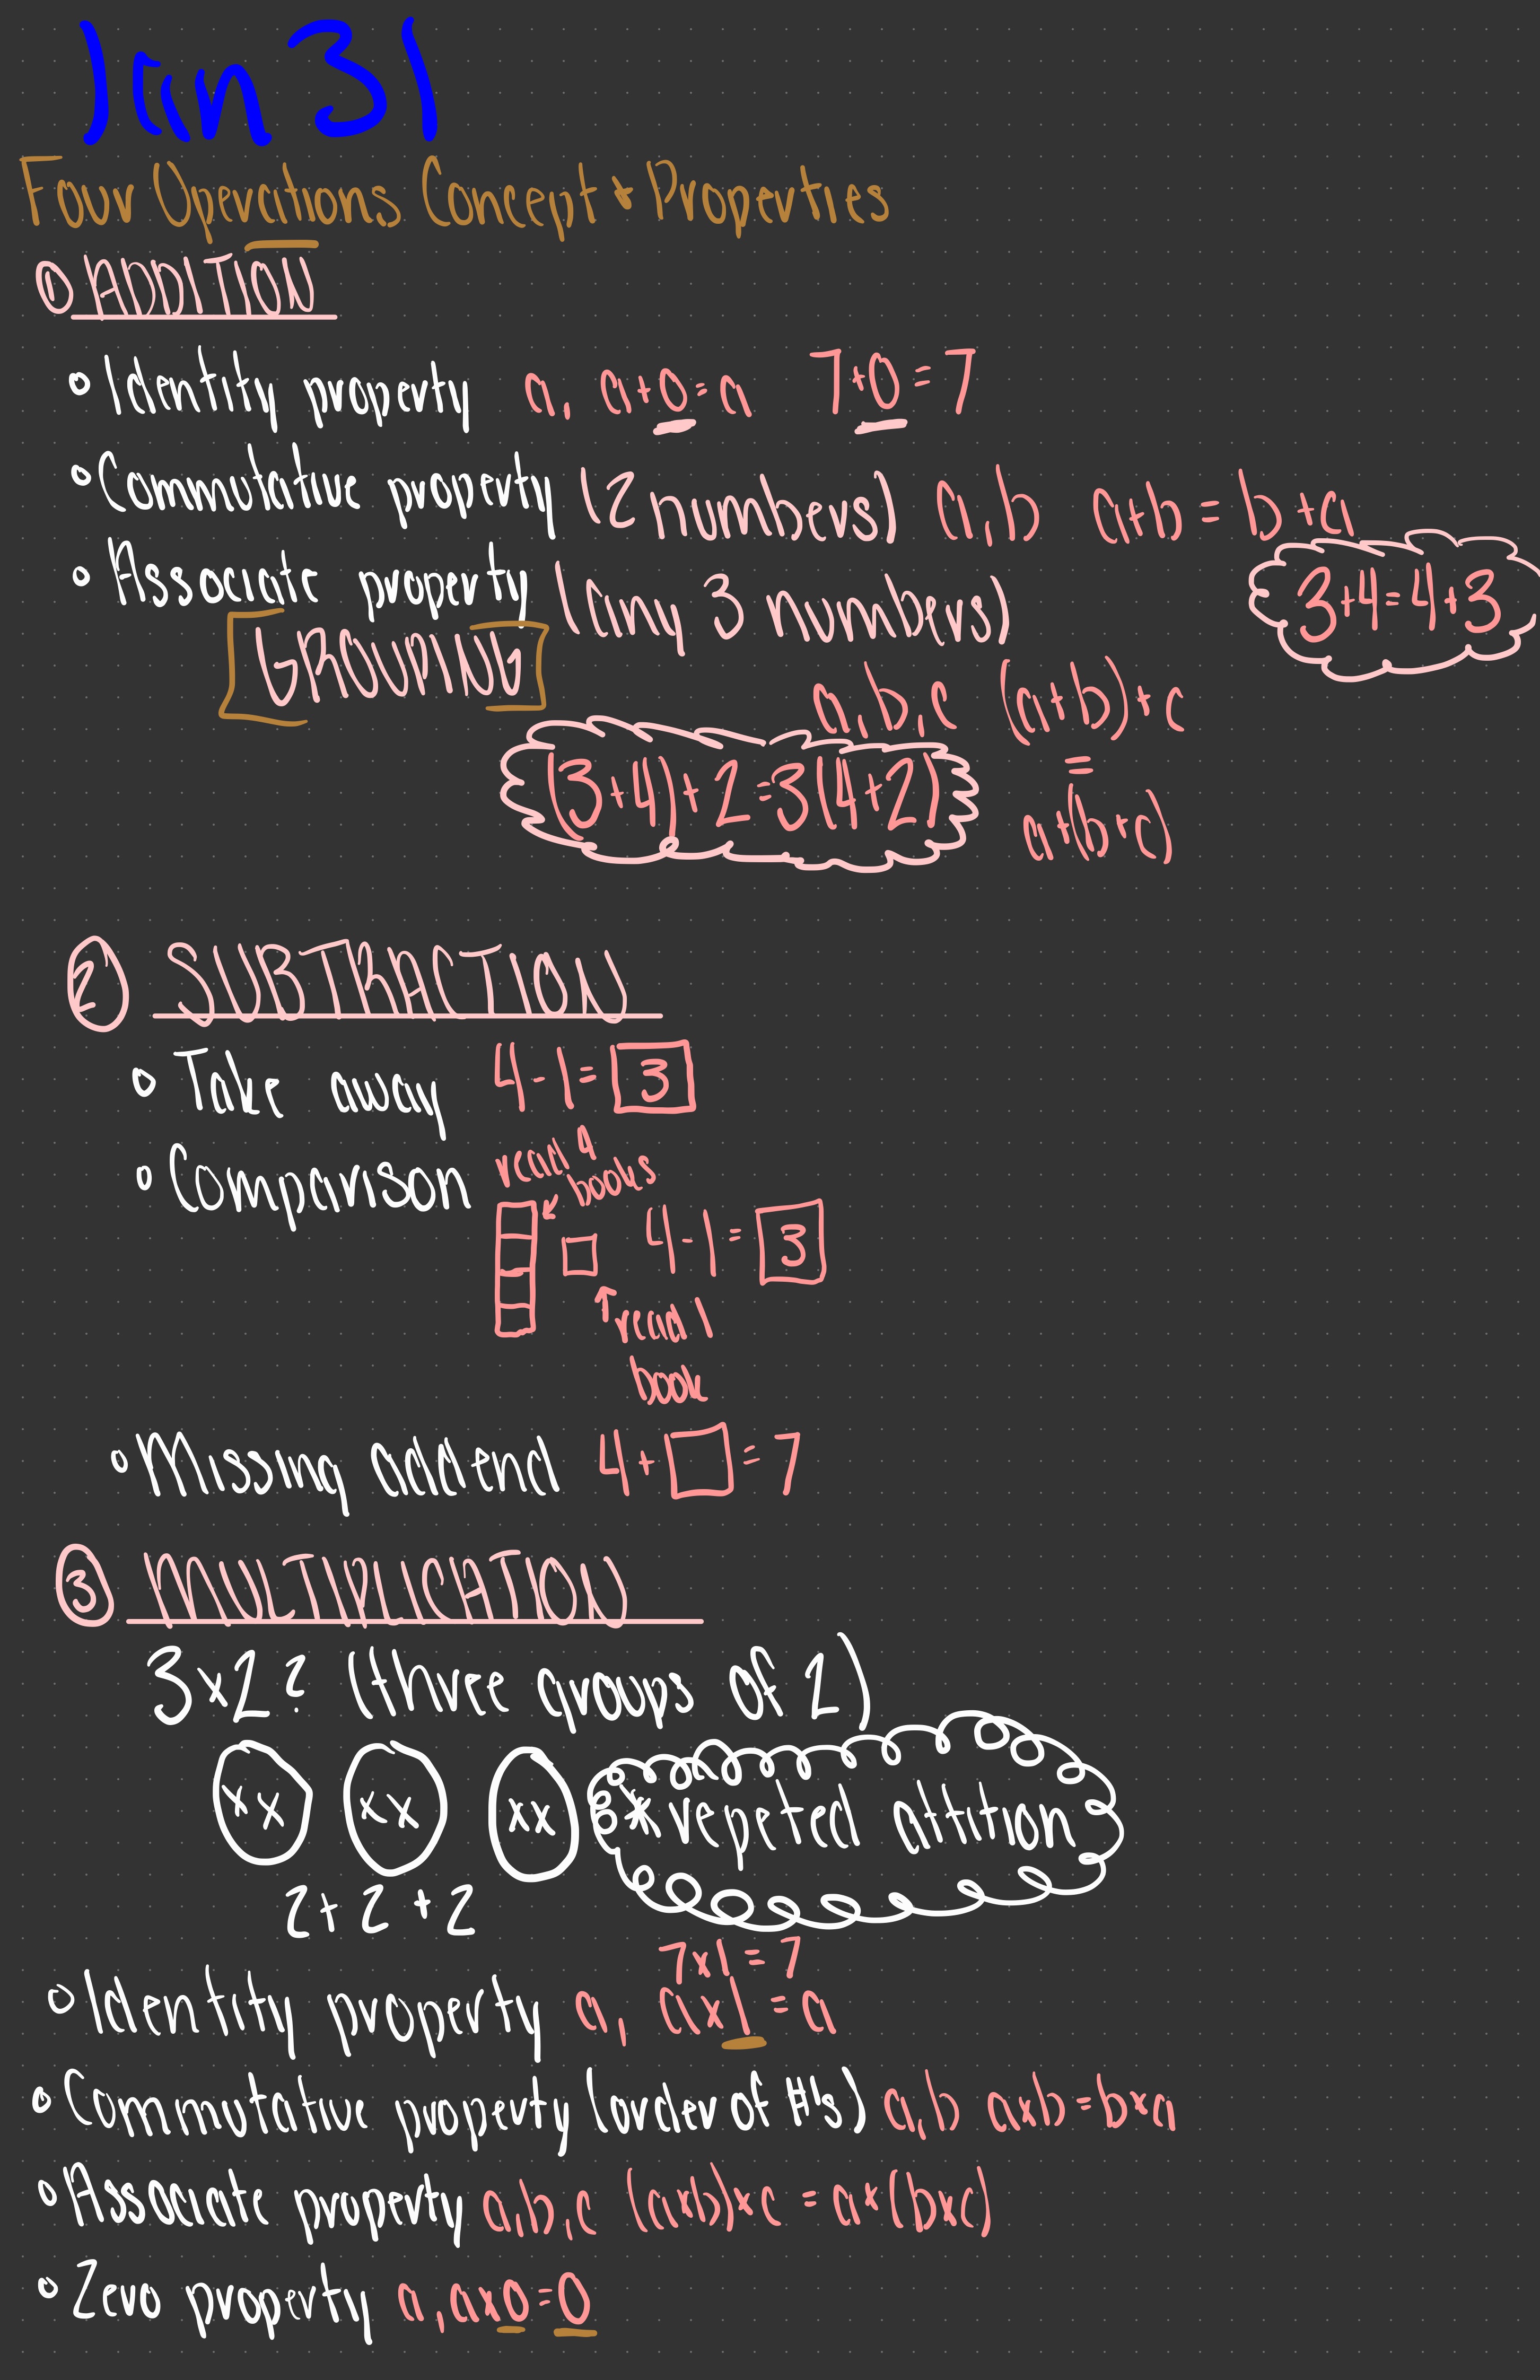 Jan 31
Four Operations Concept + Properties
① ADDITION
◦ Identity property a, a+0=a 7+0=7
◦ Commutitive property (2 numbers) a,b a+b = b+a
◦ Associate property (any 3 numbers) 3+4=4+3
[GROUPING]
a,b,c (a+b)+c
=
a+(b+c)
(3+4)+2=3(4+2)
② SUBTRACTION
◦ Take away 4-1= 3
◦ Comparison read 4 books
4-1= 3
read 1
book
◦ Missing addend 4+□=7
③ MULTIPLICATION
3x2? (three groups of 2)
xx xx xx * repeted attition
2+2+2
7x1=7
◦ Identity property a, ax1=a
◦ Commutative property (order of #'s) a,b axb=bxa
◦ Associate property a,b,c (axb)xc = ax(bxc)
◦ Zero property a, ax0=0